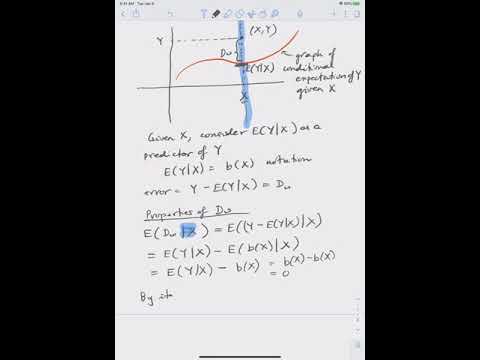 9:41 AM Tue Jan 9
Y
(X,Y)
Dw
E(Y|X)
graph of
conditional
expectation of Y
given X
X
Given X, consider E(Y|X) as a
predictor of Y
E(Y|X) = b(X) notation
error = Y - E(Y|X) = Dw
Properties of Dw
E(Dw|X) = E((Y - E(Y|X)|X)
= E(Y|X) - E(b(X)|X)
= E(Y|X) - b(X) = b(X)-b(X)
= 0
By ite